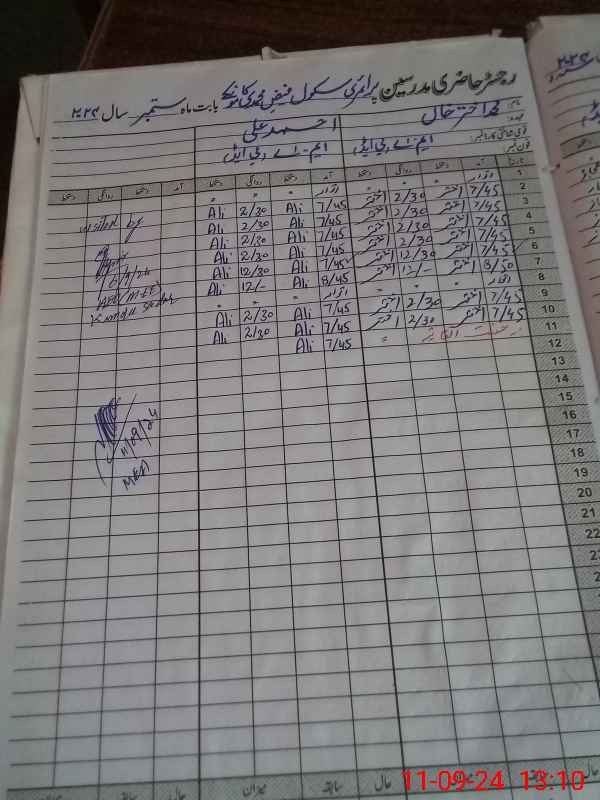 رجسٹر حاضری مدرسین پرائمری سکول فیض محمد کا بابت ماہ ستمبر سال ۲۰۲۴
نام: محمد اختر خان احمد علی
عہدہ:
ایم۔اے، بی ایڈ ایم۔اے، بی ایڈ
تاریخ آمد دستخط روانگی دستخط آمد دستخط روانگی دستخط آمد دستخط روانگی دستخط
1 اتوار " " " اتوار " " "
2 7/45 اختر 2/30 اختر 7/45 Ali 2/30 Ali
3 7/45 اختر 2/30 اختر 7/45 Ali 2/30 Ali
4 7/45 اختر 2/30 اختر 7/45 Ali 2/30 Ali
5 7/45 اختر 2/30 اختر 7/45 Ali 2/30 Ali
6 7/45 اختر 12/30 اختر 7/45 Ali 12/30 Ali
7 8/50 اختر 12/- اختر 8/45 Ali 12/- Ali
8 اتوار " " " اتوار " " "
9 7/45 اختر 2/30 اختر 7/45 Ali 2/30 Ali
10 7/45 اختر 2/30 اختر 7/45 Ali 2/30 Ali
11 رخصت اتفاقیہ " 7/45 Ali
12
13
14
15
16
17
18
19
20
21
22
23
visited by
6/9/24
AEO (M-EE)
11/09/24
MEA
حال سابقہ میزان حال سابقہ میزان حال
11-09-24 13:10